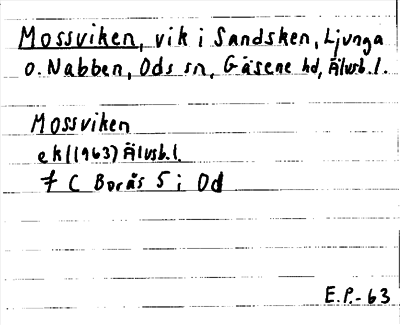 Mossviken, vik i Sandsken, Ljunga
o. Nabben, Ods sn, Gäsene hd, Älvsb.l.
Mossviken
ek (1963) Älvsb.l.
7 C Borås 5 i Od
E.P.-63